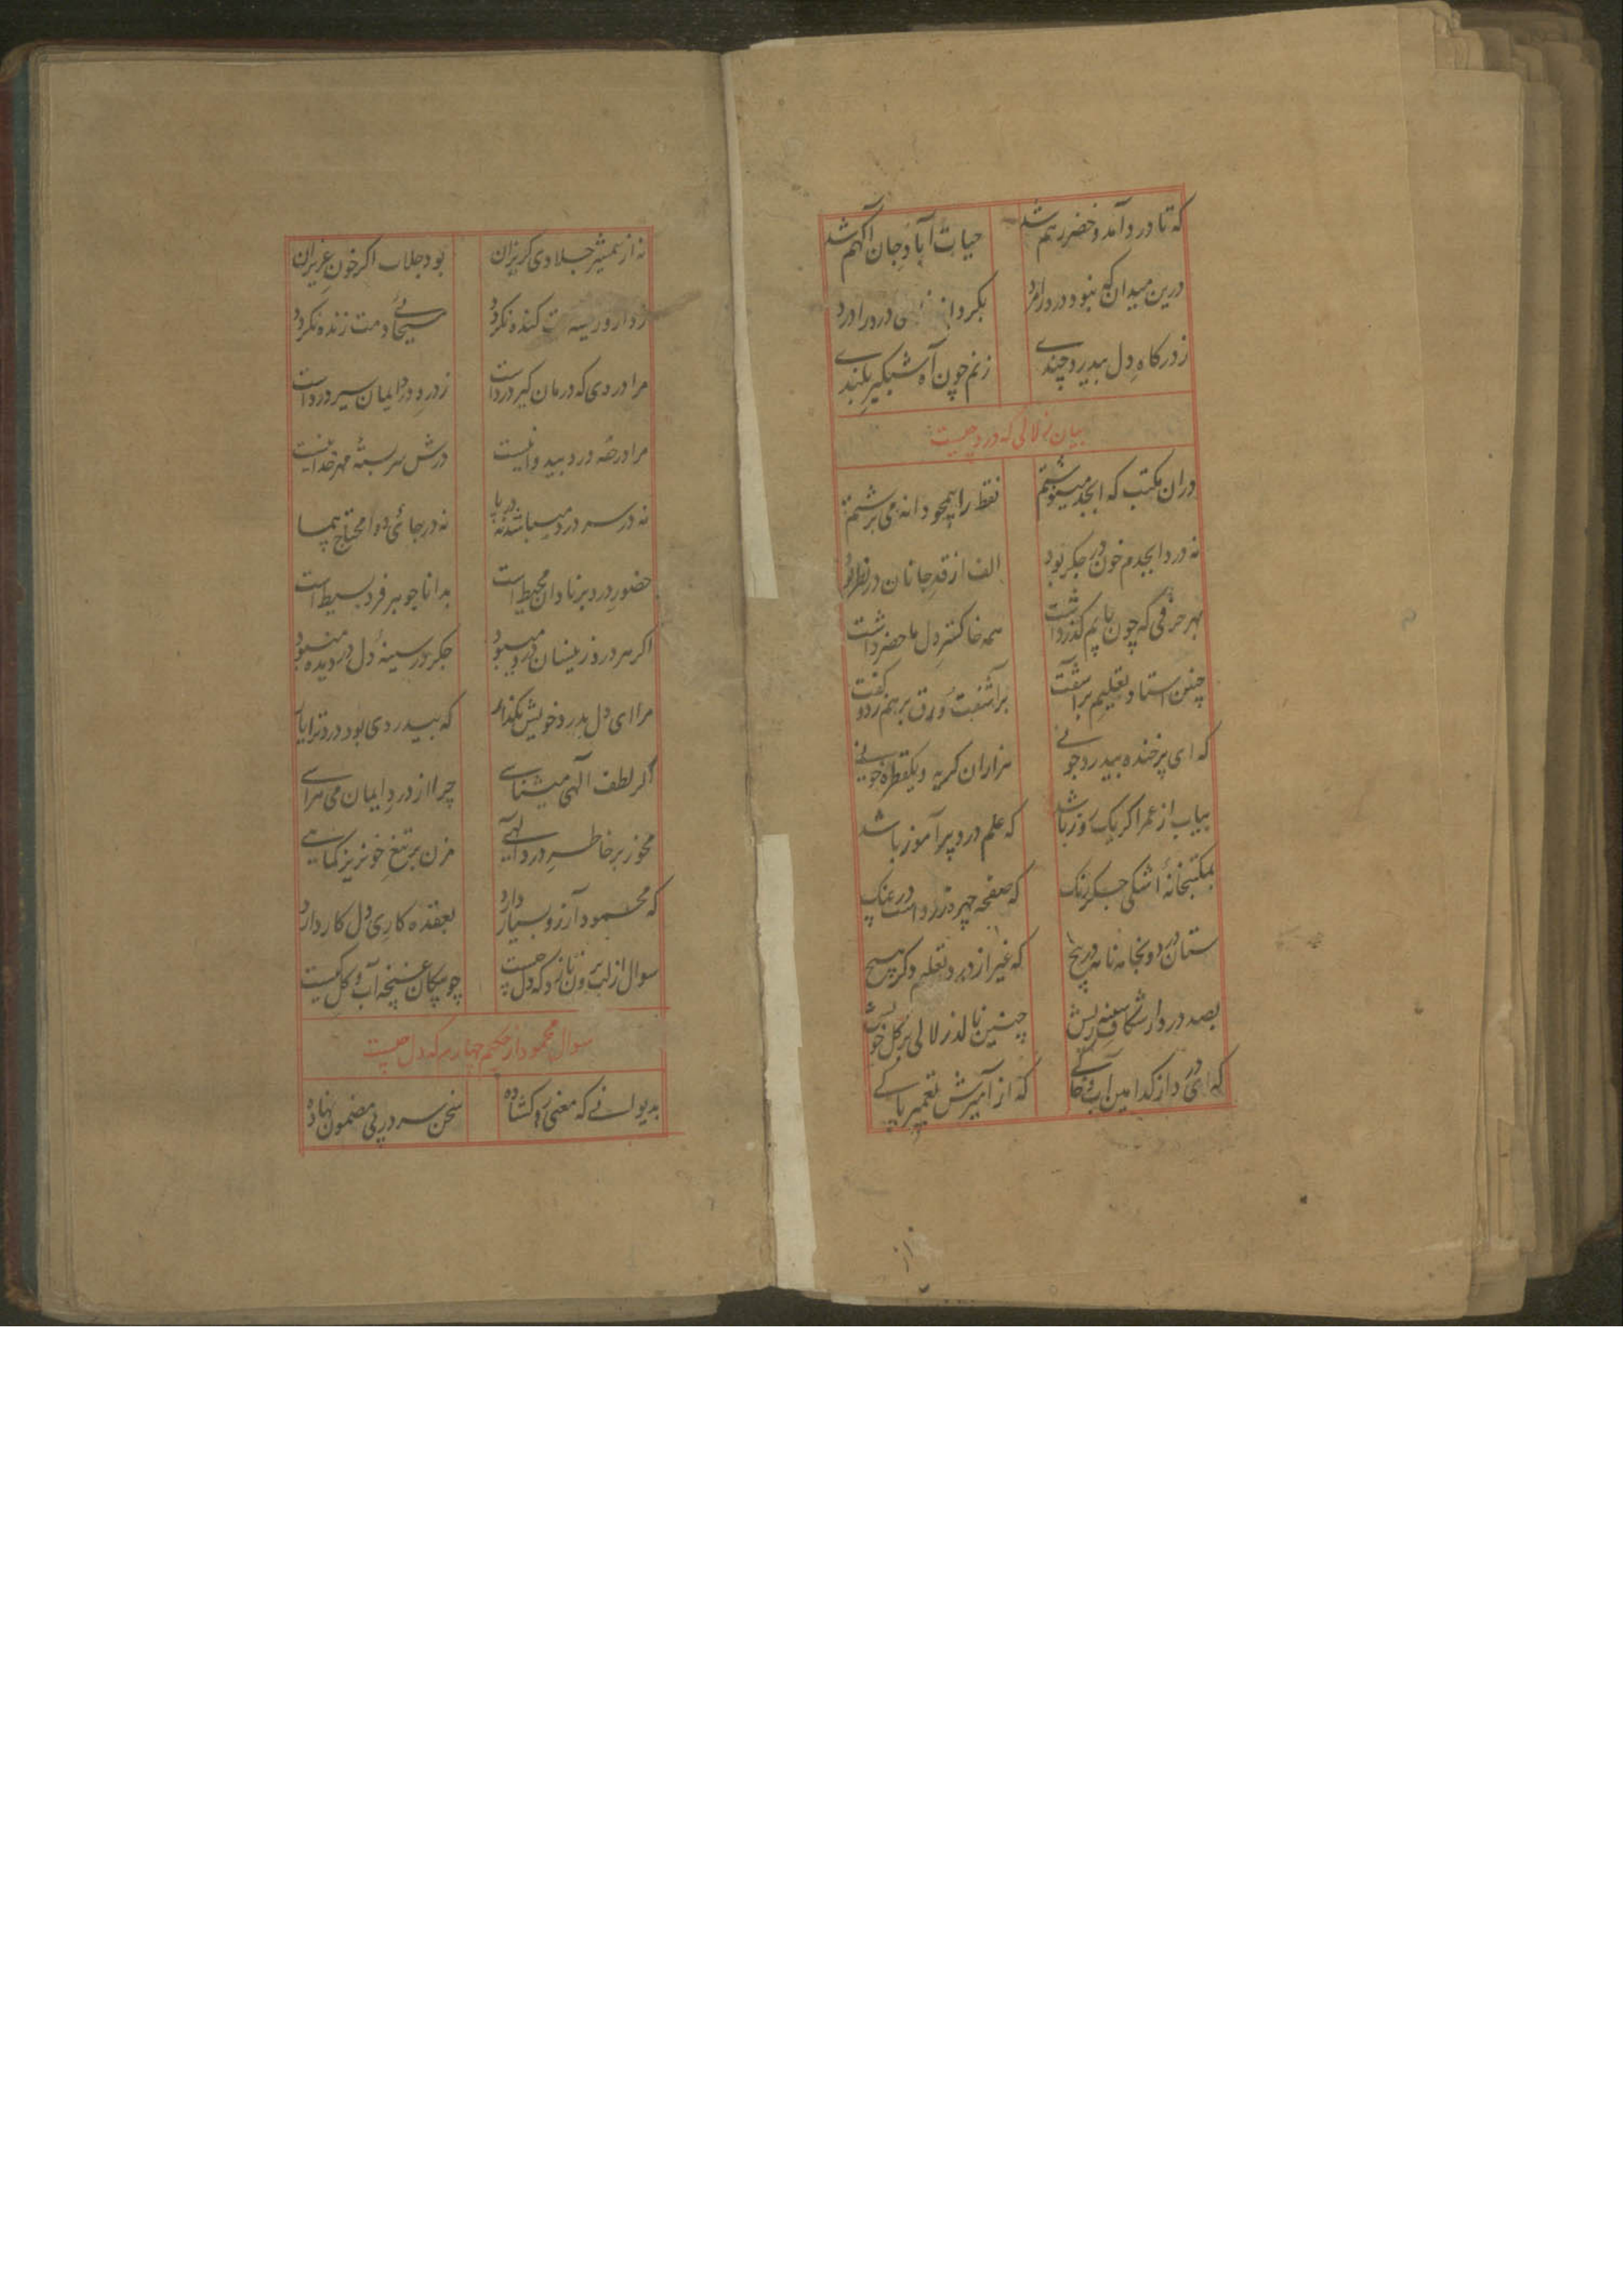 که تا درد آمد و خضر رهم شد حیات آباد جان آگهم شد
درین میدان که نبود درد را مرد بگرد درد را درد
ز درگاه دل بیدرد چندی زنم چون آه شبگیر بلندی
بیان زلالی که درد چیست
دران مکتب که ابجد مینوشتم نقط را همچو دانه می برشتم
نه درد ابجدم خون در جگر بود الف از قد جانان در نظر بود
بهر حرفی که چون نایم گذر داشت همه خاکستر دل ما حضر داشت
چنین استاد تعلیم براشفت براشفت و ورق برهم زد و گفت
که ای پرخنده بیدرد جونی هزاران گریه و یکقطره خونی
بیاب از عمر اگر یک روز باشد که علم درد پرآموز باشد
بمکتبخانهٔ اشکی جگر رنگ که صفحه چهره زرد است در چنگ
ستان درد و بجا نه نامه در پیچ که غیر از درد تعلیم دگر هیچ
بصد درد از شکاف سینه ریش چنین نالد زلالی بر گل خویش
که ای درد از کدامین آب و خاکی که از آمیزش تعمیر پاکی
از
نه از شمشیر جلادی گریزان بود جلاب اگر خون عزیزان
ز دار و ریسمانت کنده نگردد مسیحائی دمت زنده نگردد
مرا دردی که درمان گیر درد است ز درد درد ایمان سیر درد است
مرا درجه درد بیدوا نیست درش سربستهٔ مهر خدا نیست
نه در سر درد میباشد نه در پا نه در جائی و او محتاج هم با
حضور درد بر نادان محیط است بدانا جوهر فرد بسیط است
اگر هر درد زینسان درد میبود جگر در سینهٔ دل در دیده میبود
مرا ای دل بدرد خویش بگذار که بیدردی بود درد تو ای یار
گر لطف آلهی میشناسی چرا از درد ایمان می هراسی
مخور بر خاطر درد الهی مزن بر تیغ خونریز کماهی
که محمود آرزو بسیار دارد بعقده کاری دل کار دارد
سوال از لب برون نازد که دل چیست چو پیکان غنچه آب و گل کیست
سوال محمود از حکیم چهارم که دل چیست
بدیوانی که معنی رو گشاده سخن سر در پی مضمون نهاده